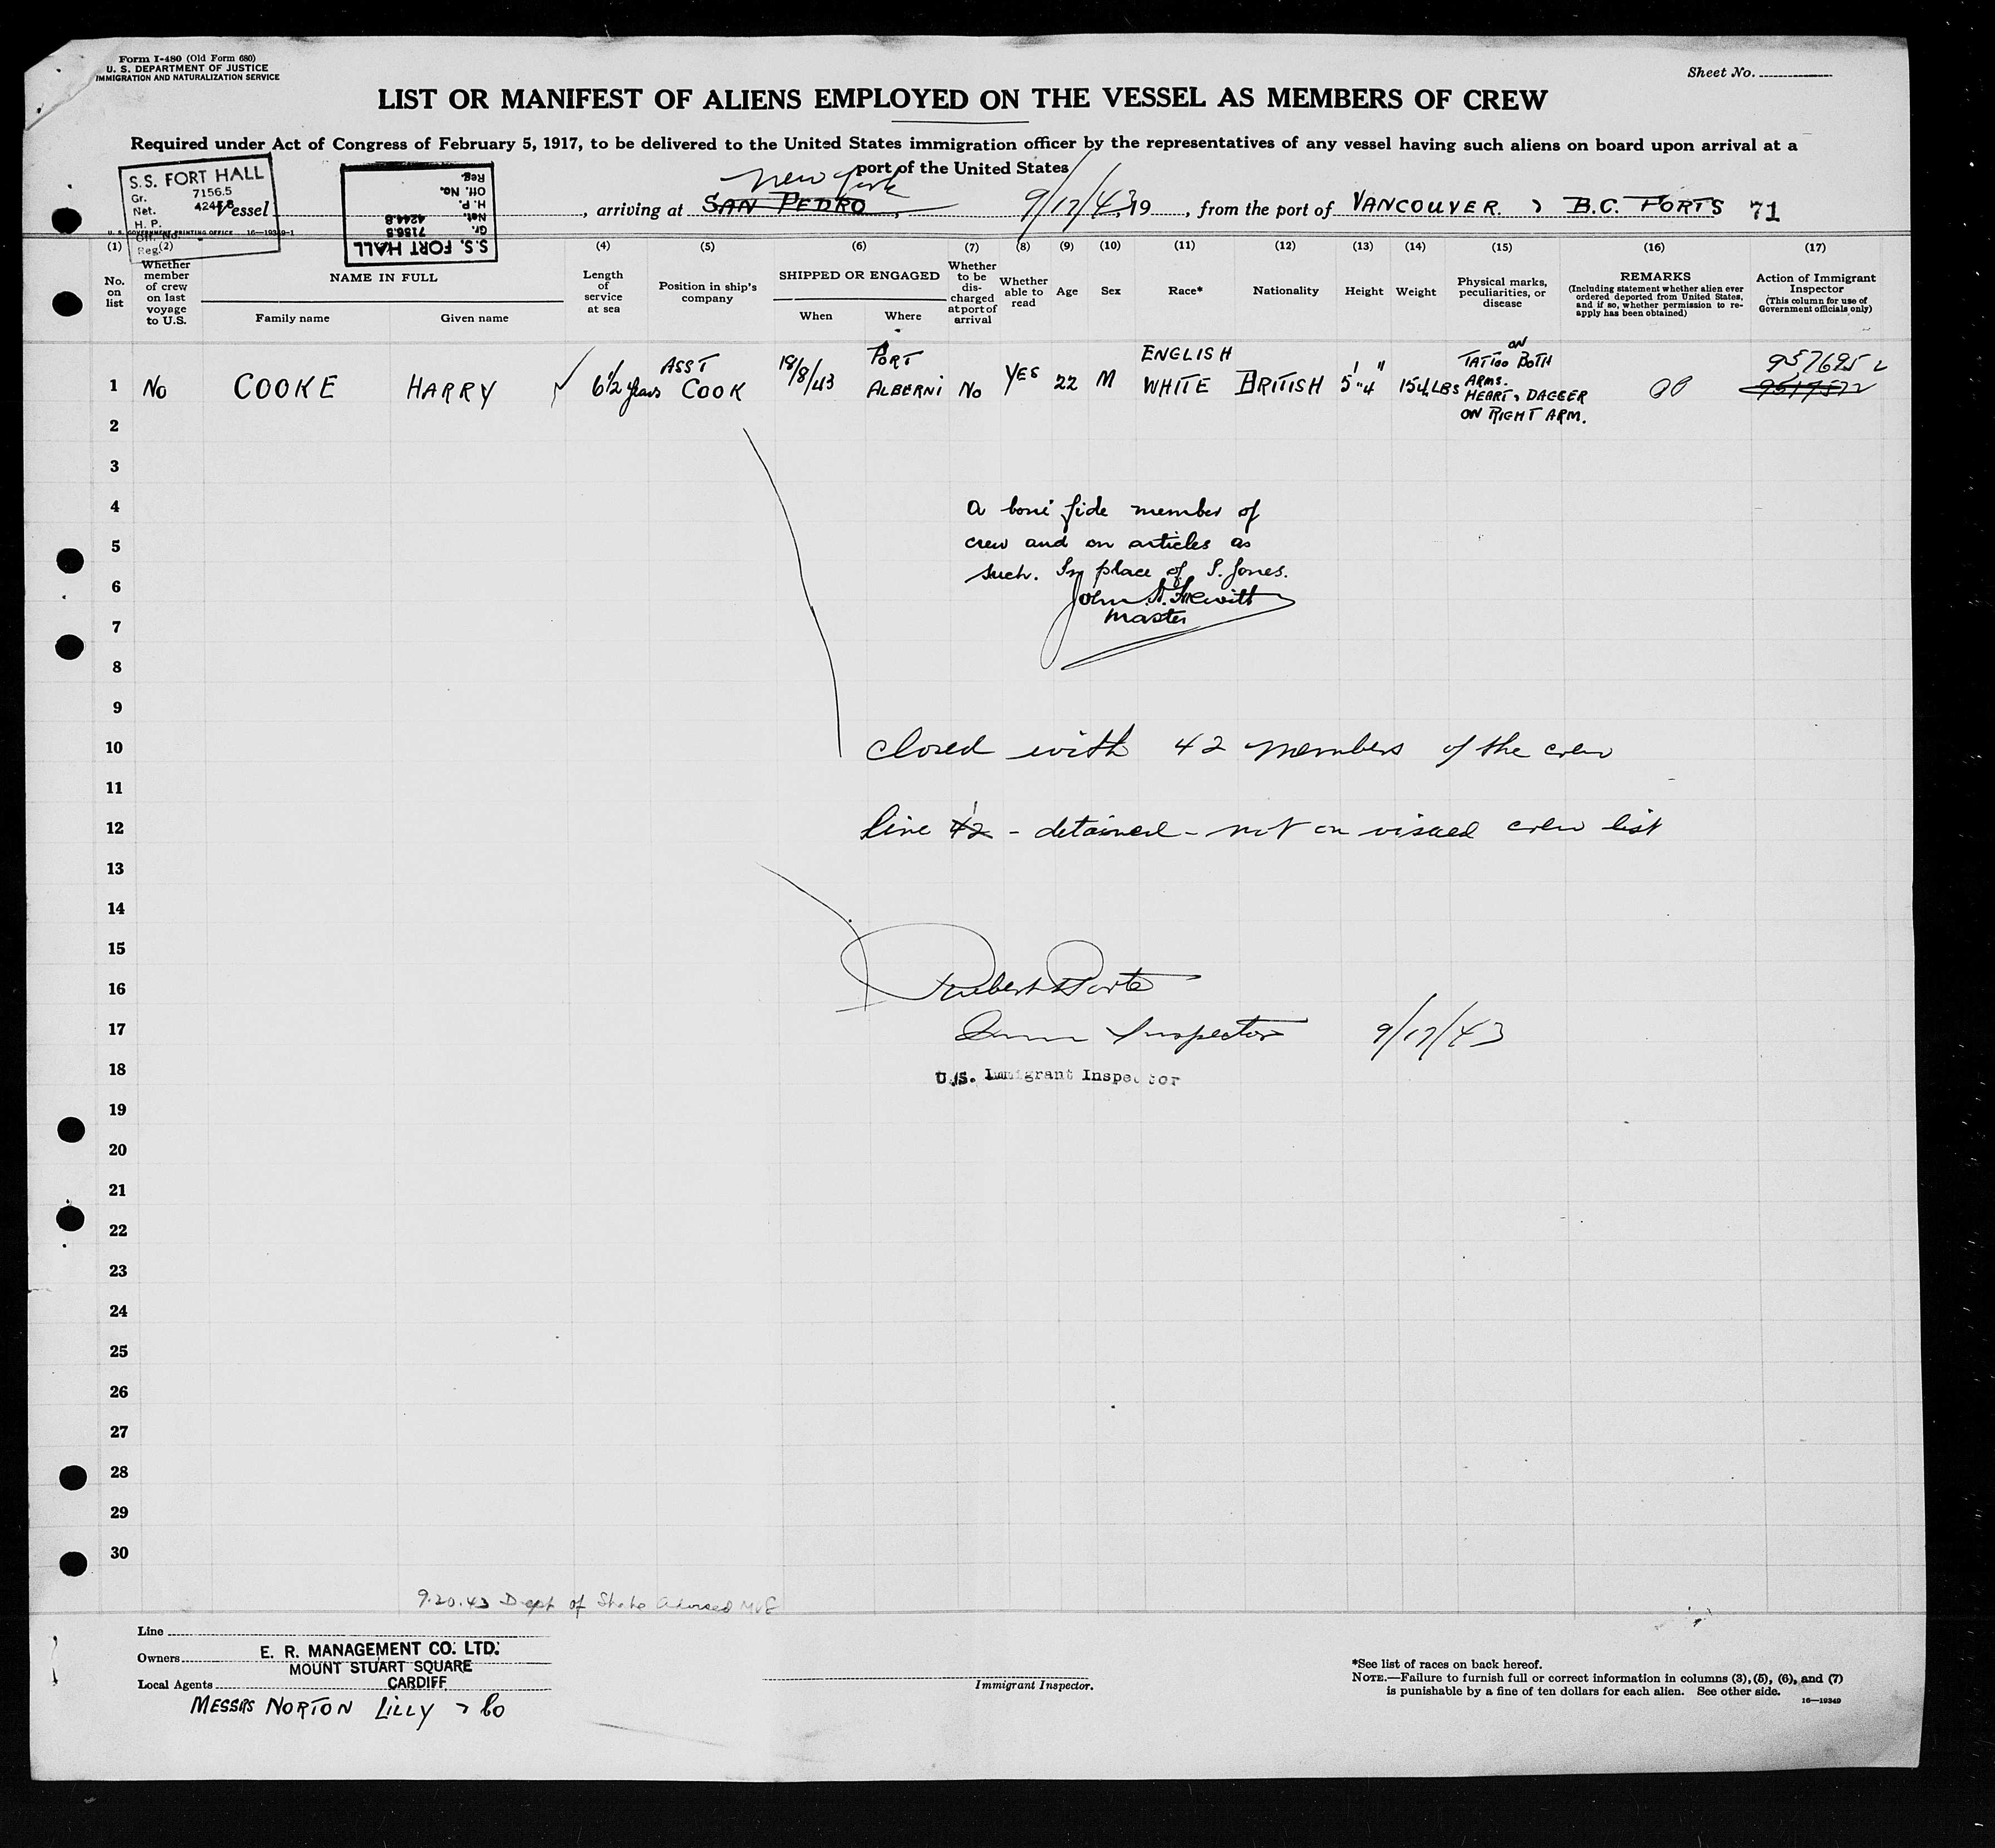 Form I-480 (Old Form 680)
U. S. DEPARTMENT OF JUSTICE
IMMIGRATION AND NATURALIZATION SERVICE
Sheet No.
LIST OR MANIFEST OF ALIENS EMPLOYED ON THE VESSEL AS MEMBERS OF CREW
Required under Act of Congress of February 5, 1917, to be delivered to the United States immigration officer by the representatives of any vessel having such aliens on board upon arrival at a
port of the United States
S.S. FORT HALL
Gr. 7156.5
Net. 4244.8
H. P.
Off. No.
Reg.
S.S. FORT HALL
Gr. 7156.5
Net. 4244.8
H. P.
Off. No.
Reg.
New York
Vessel , arriving at SAN PEDRO, 9/17/43, 19 , from the port of VANCOUVER & B.C. PORTS 71
U. S. GOVERNMENT PRINTING OFFICE 16—19349-1
(1) (2) (4) (5) (6) (7) (8) (9) (10) (11) (12) (13) (14) (15) (16) (17)
No. on list
Whether member of crew on last voyage to U.S.
NAME IN FULL
Family name Given name
Length of service at sea
Position in ship's company
SHIPPED OR ENGAGED
When Where
Whether to be discharged at port of arrival
Whether able to read
Age
Sex
Race*
Nationality
Height
Weight
Physical marks, peculiarities, or disease
REMARKS
(Including statement whether alien ever ordered deported from United States, and if so, whether permission to reapply has been obtained)
Action of Immigrant Inspector
(This column for use of Government officials only)
1 No COOKE HARRY 6½ years ASST COOK 18/8/43 PORT ALBERNI No YES 22 M ENGLISH WHITE BRITISH 5'"4" 154 LBS TATTOO ON BOTH ARMS. HEART & DAGGER ON RIGHT ARM. 957695 2
2
3
4
a boni fide member of
5
crew and on articles as
6
such. In place of S. Jones.
John Hewitt
7
Master
8
9
10 closed with 42 members of the crew
11
12 line 42 1 - detained - not on visaed crew list
13
14
15
16
17 Inspector 9/17/43
18 U.S. Immigrant Inspector
19
20
21
22
23
24
25
26
27
28
29
30
9.20.43 Dept of State advised
Line
Owners E. R. MANAGEMENT CO. LTD.
MOUNT STUART SQUARE
Local Agents CARDIFF
MESSRS NORTON LILLY & Co
Immigrant Inspector.
*See list of races on back hereof.
NOTE.—Failure to furnish full or correct information in columns (3), (5), (6), and (7)
is punishable by a fine of ten dollars for each alien. See other side. 16—19349